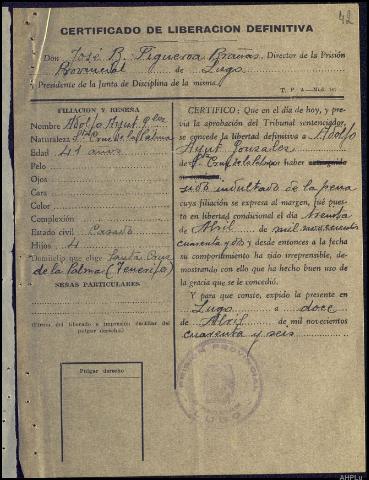 42
CERTIFICADO DE LIBERACION DEFINITIVA
Don José R. Figueroa Brañas, Director de la Prisión
Provincial de Lugo
y Presidente de la Junta de Disciplina de la misma.
T. P. A.
FILIACION Y RESEÑA
Nombre Adolfo Ayut Glez
Naturaleza Sta Cruz de la Palma
Edad 41 años
Pelo
Ojos
Cara
Color
Complexión
Estado civil Casado
Hijos 4
Domicilio que elige Santa Cruz
de la Palma (Tenerife)
SEÑAS PARTICULARES
(Firma del liberado e impresión dactilar del
pulgar derecho)
Pulgar derecho
CERTIFICO: Que en el día de hoy, y pre-
via la aprobación del Tribunal sentenciador,
se concede la libertad definitiva a Adolfo
Ayut Gonzales
de Sta Cruz de la Palma haber
sido indultado de la pena
cuya filiación se expresa al margen, fué pues-
to en libertad condicional el día treinta
de Abril de mil novecientos
cuarenta y dos y desde entonces a la fecha
su comportamiento ha sido irreprensible, de-
mostrando con ello que ha hecho buen uso de
la gracia que se le concedió.
Y para que conste, expido la presente en
Lugo a doce
de Abril de mil novecientos
cuarenta y seis
PRISION PROVINCIAL
LUGO
AHPLu